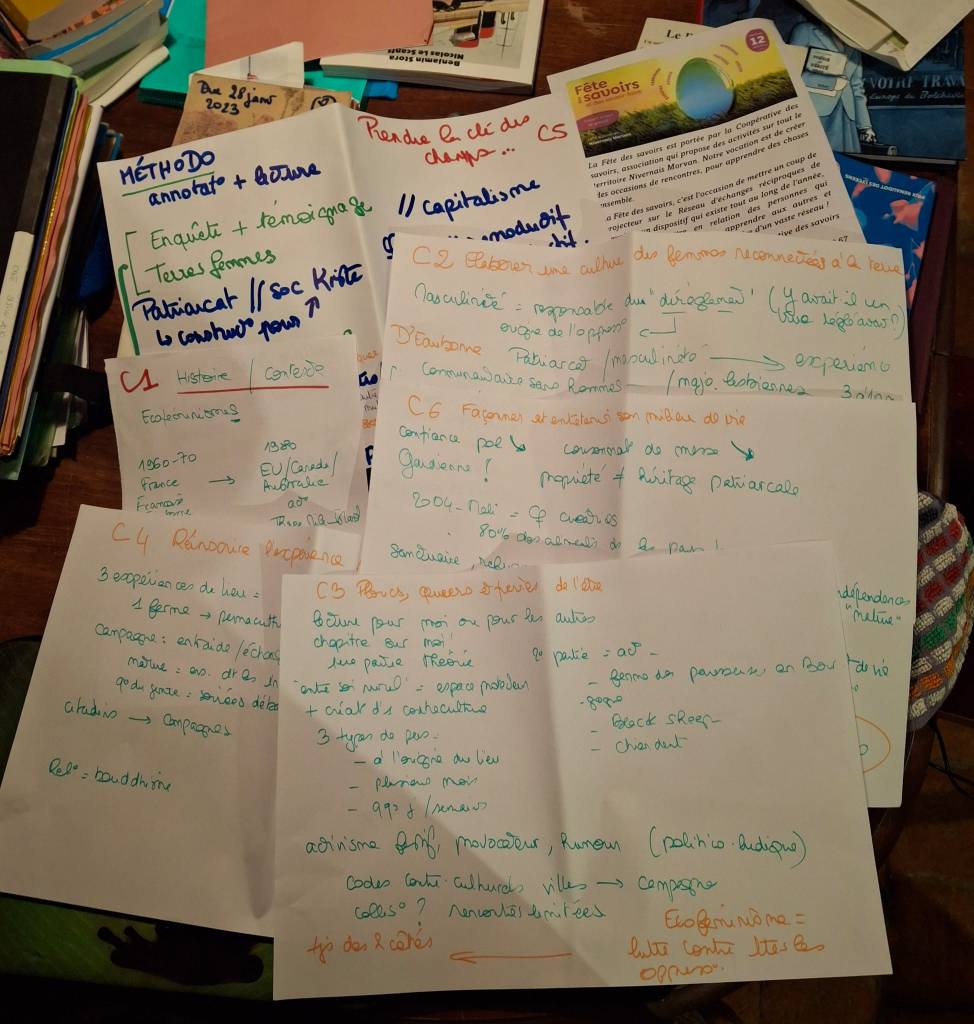 Benjamin Stora
Nicolas Le Scanff
Du 28 janv
2023
MÉTHODO
annotat° + lecture
Enquête + témoignage
Terres femmes
Patriarcat // soc Kriste
↳ construct° pour ↑
Prendre la clé des
champs... C5
// capitalisme
productif
Fête
des savoirs
et des savoir-faire
12
La Fête des savoirs est portée par la Coopérative des
savoirs, association qui propose des activités sur tout le
territoire Nivernais Morvan. Notre vocation est de créer
des occasions de rencontres, pour apprendre des choses
ensemble.
La Fête des savoirs, c'est l'occasion de mettre un coup de
projecteur sur le Réseau d'échanges réciproques de
un dispositif qui existe tout au long de l'année,
en relation des personnes qui
apprendre aux autres et
d'un vaste réseau !
des savoirs
67
VOTRE TRAVA
PRIX RENAUDOT DES LYCÉENS
C2 Elaborer une culture des femmes reconnectées à la terre
Masculinité = responsable du "dérèglement" (Y avait il un
réglé avant?)
origine de l'oppress°
D'Eaubonne Patriarcat / masculinité → experience
Communautaire sans hommes / majo. lesbiennes
C1 Histoire / Contexte
Ecoféminismes
1960-70 1980
France → EU/Canada/
Française Australie
C6 Façonner et entretenir son milieu de vie
confiance pol ↘ consommat° de masse ↘
Gardienne ! propriété ≠ héritage patriarcale
2004 - Mali = ♀
80% des aliments
Sanctuaire,
C4 Réinscrire l'expérience
3 expériences de lieu =
1 ferme → permacultu
Campagne : entraide / échan
citadins → campagnes
Rel° = bouddhisme
C3 Ploucs, queers et de l'être
lecture pour moi ou pour les autres
chapitre sur moi !
1ere partie théorie 2° partie =
"entre soi rural" = espace protecteur
+ créat° d'1 contreculture
3 types de pers =
- à l'origine du lieu
- plusieurs mois
- qqs j / semaines
- ferme des paresseuses en Bour
-gogne
- Black Sheep
- Chiendent
activisme festif, provocateur, humour (politico-ludique)
codes contre-culturels villes → campagne
collis° ? rencontres limitées
tjs des 2 côtés ←
Ecoféminisme =
lutte contre ttes les
oppress°.
indépendances
"nature"
de vie